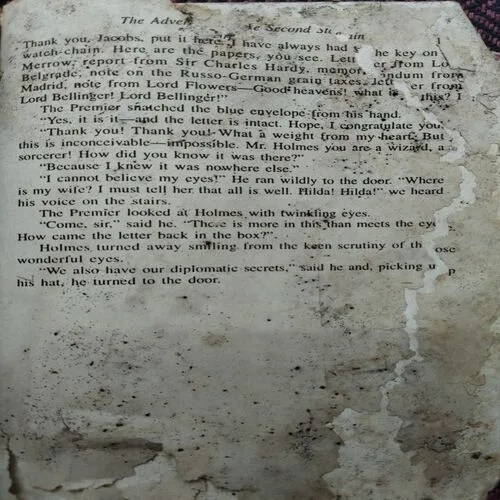 The Adve   e Second St in
Thank you, Jacobs, put it here. I have always had   he key on
watch-chain. Here are the papers, you see. Lett er from Lo
Merrow, report from Sir Charles Hardy, memor andum from
Belgrade, note on the Russo-German grain taxes, lett er from
Madrid, note from Lord Flowers—Good heavens! what is this? I
Lord Bellinger! Lord Bellinger!"
The Premier snatched the blue envelope from his hand.
"Yes, it is it—and the letter is intact. Hope, I congratulate you.
"Thank you! Thank you! What a weight from my heart. But
this is inconceivable—impossible. Mr. Holmes you are a wizard, a
sorcerer! How did you know it was there?"
"Because I knew it was nowhere else."
"I cannot believe my eyes!" He ran wildly to the door. "Where
is my wife? I must tell her that all is well. Hilda! Hilda!" we heard
his voice on the stairs.
The Premier looked at Holmes with twinkling eyes.
"Come, sir," said he. "There is more in this than meets the eye
How came the letter back in the box?"
Holmes turned away smiling from the keen scrutiny of th ose
wonderful eyes.
"We also have our diplomatic secrets," said he and, picking u p
his hat, he turned to the door.